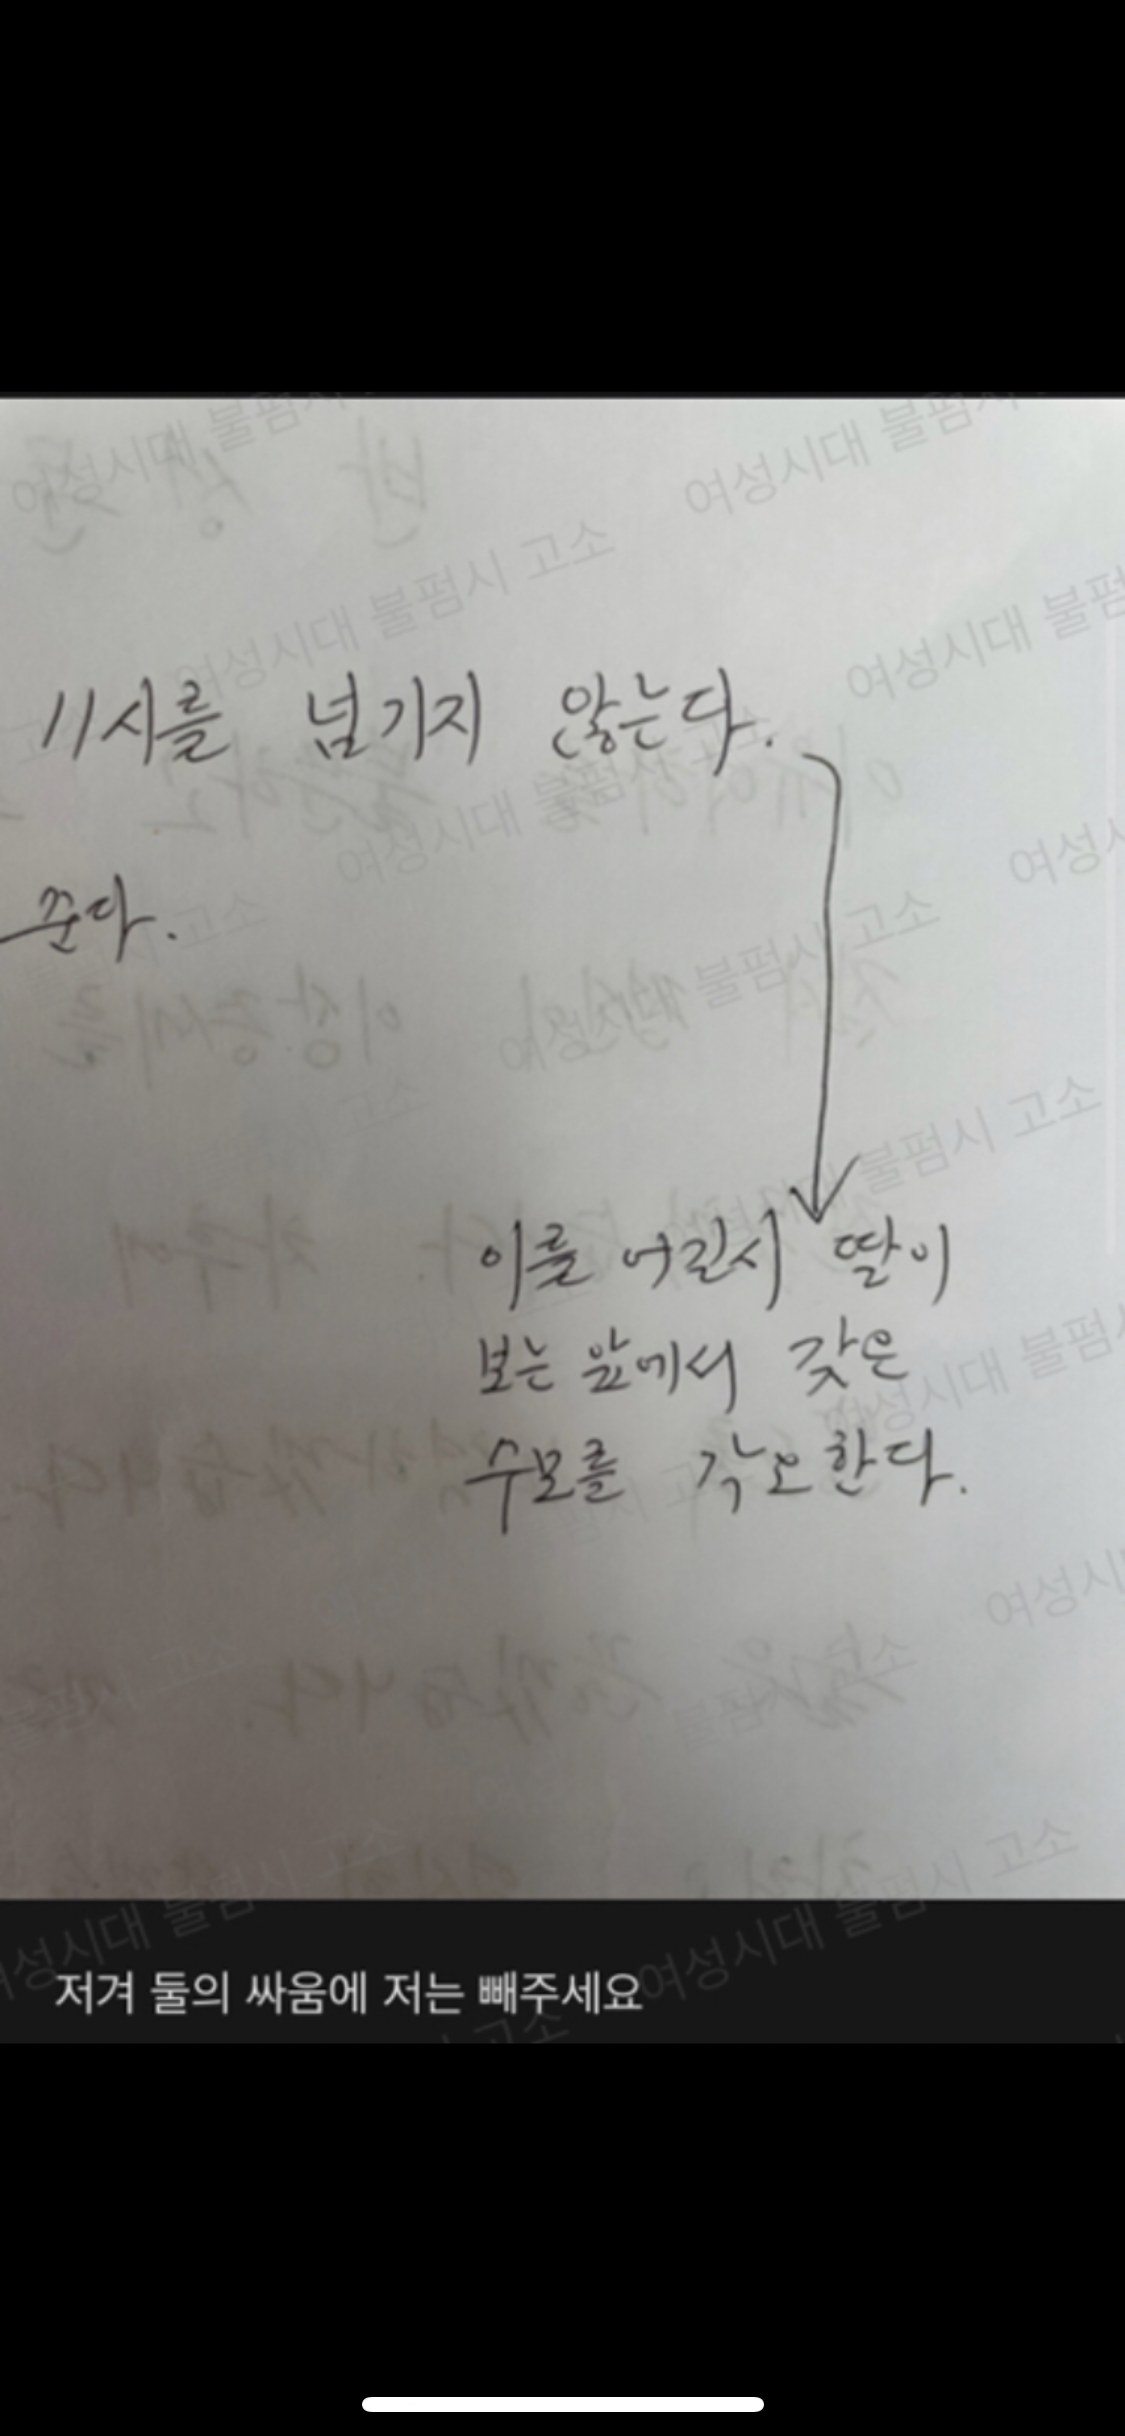 11시를 넘기지 않는다.
준다.
이를 어길시 딸이
보는 앞에서 갖은
수모를 각오한다.
저겨 둘의 싸움에 저는 빼주세요
여성시대 불펌시 고소